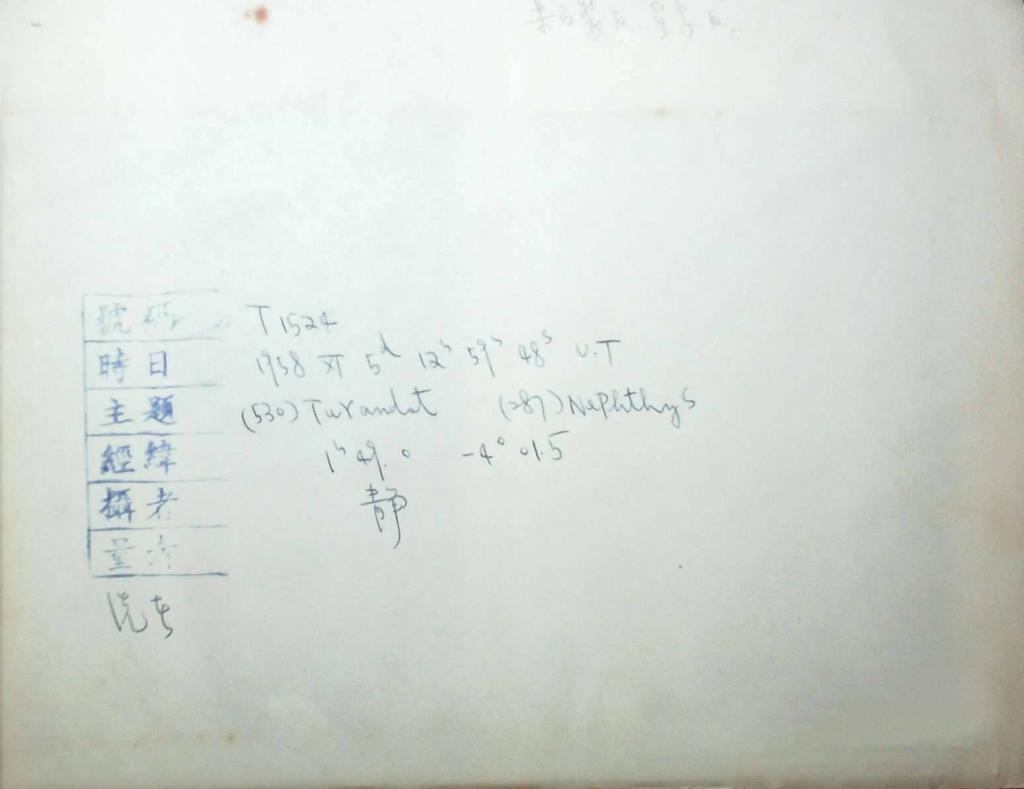 號碼 T1524
時日 1958 XI 5d 12h 59m 48s U.T
主題 (530) Turandot (287) Nephthys
經緯 1h 49.0 -4° 01.5
攝者 靜
量者
洗者